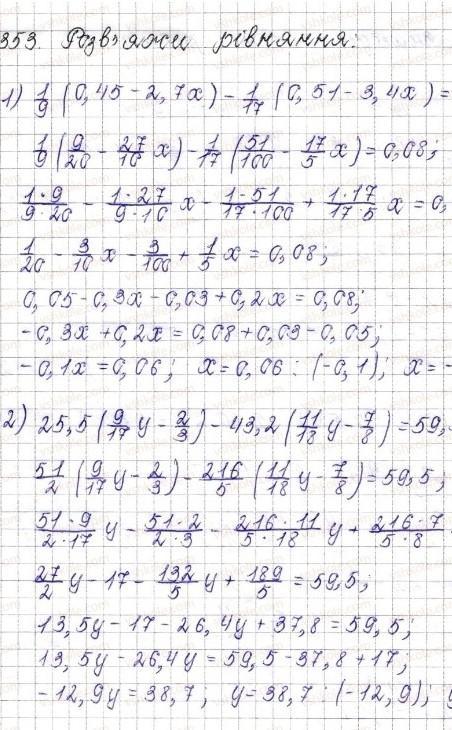 353. Розв'яжи рівняння:
1) 1/9 (0,45 - 2,7x) - 1/17 (0,51 - 3,4x) =
1/9 (9/20 - 27/10 x) - 1/17 (51/100 - 17/5 x) = 0,08;
1·9/9·20 - 1·27/9·10 x - 1·51/17·100 + 1·17/17·5 x = 0,
1/20 - 3/10 x - 3/100 + 1/5 x = 0,08;
0,05 - 0,3x - 0,03 + 0,2x = 0,08;
-0,3x + 0,2x = 0,08 + 0,03 - 0,05;
-0,1x = 0,06; x = 0,06 : (-0,1); x = -
2) 25,5 (9/17 y - 2/3) - 43,2 (11/18 y - 7/8) = 59,
51/2 (9/17 y - 2/3) - 216/5 (11/18 y - 7/8) = 59,5;
51·9/2·17 y - 51·2/2·3 - 216·11/5·18 y + 216·7/5·8
27/2 y - 17 - 132/5 y + 189/5 = 59,5;
13,5y - 17 - 26,4y + 37,8 = 59,5;
13,5y - 26,4y = 59,5 - 37,8 + 17;
-12,9y = 38,7; y = 38,7 : (-12,9); y